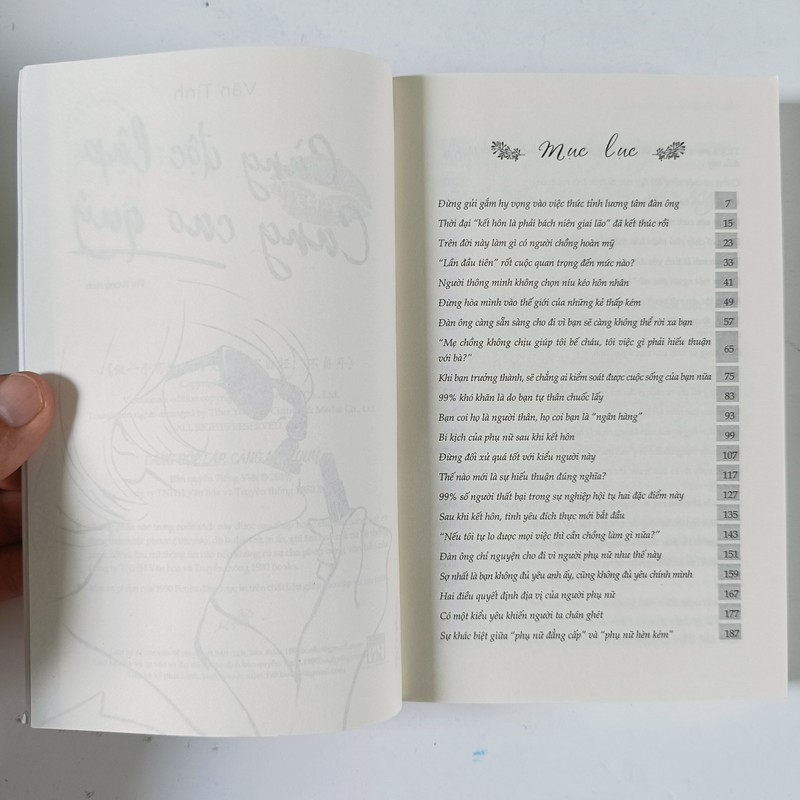 Vãn Tình
Càng độc lập
Càng cao quý
Mục lục
Đừng gửi gắm hy vọng vào việc thức tỉnh lương tâm đàn ông 7
Thời đại “kết hôn là phải bách niên giai lão” đã kết thúc rồi 15
Trên đời này làm gì có người chồng hoàn mỹ 23
“Lần đầu tiên” rốt cuộc quan trọng đến mức nào? 33
Người thông minh không chọn níu kéo hôn nhân 41
Đừng hòa mình vào thế giới của những kẻ thấp kém 49
Đàn ông càng sẵn sàng cho đi vì bạn sẽ càng không thể rời xa bạn 57
“Mẹ chồng không chịu giúp tôi bế cháu, tôi việc gì phải hiếu thuận
với bà?” 65
Khi bạn trưởng thành, sẽ chẳng ai kiểm soát được cuộc sống của bạn nữa 75
99% khó khăn là do bạn tự thân chuốc lấy 83
Bạn coi họ là người thân, họ coi bạn là “ngân hàng” 93
Bi kịch của phụ nữ sau khi kết hôn 99
Đừng đối xử quá tốt với kiểu người này 107
Thế nào mới là sự hiếu thuận đúng nghĩa? 117
99% số người thất bại trong sự nghiệp hội tụ hai đặc điểm này 127
Sau khi kết hôn, tình yêu đích thực mới bắt đầu 135
“Nếu tôi tự lo được mọi việc thì cần chồng làm gì nữa?” 143
Đàn ông chỉ nguyện cho đi vì người phụ nữ như thế này 151
Sợ nhất là bạn không đủ yêu anh ấy, cũng không đủ yêu chính mình 159
Hai điều quyết định địa vị của người phụ nữ 167
Có một kiểu yêu khiến người ta chán ghét 177
Sự khác biệt giữa “phụ nữ đẳng cấp” và “phụ nữ hèn kém” 187